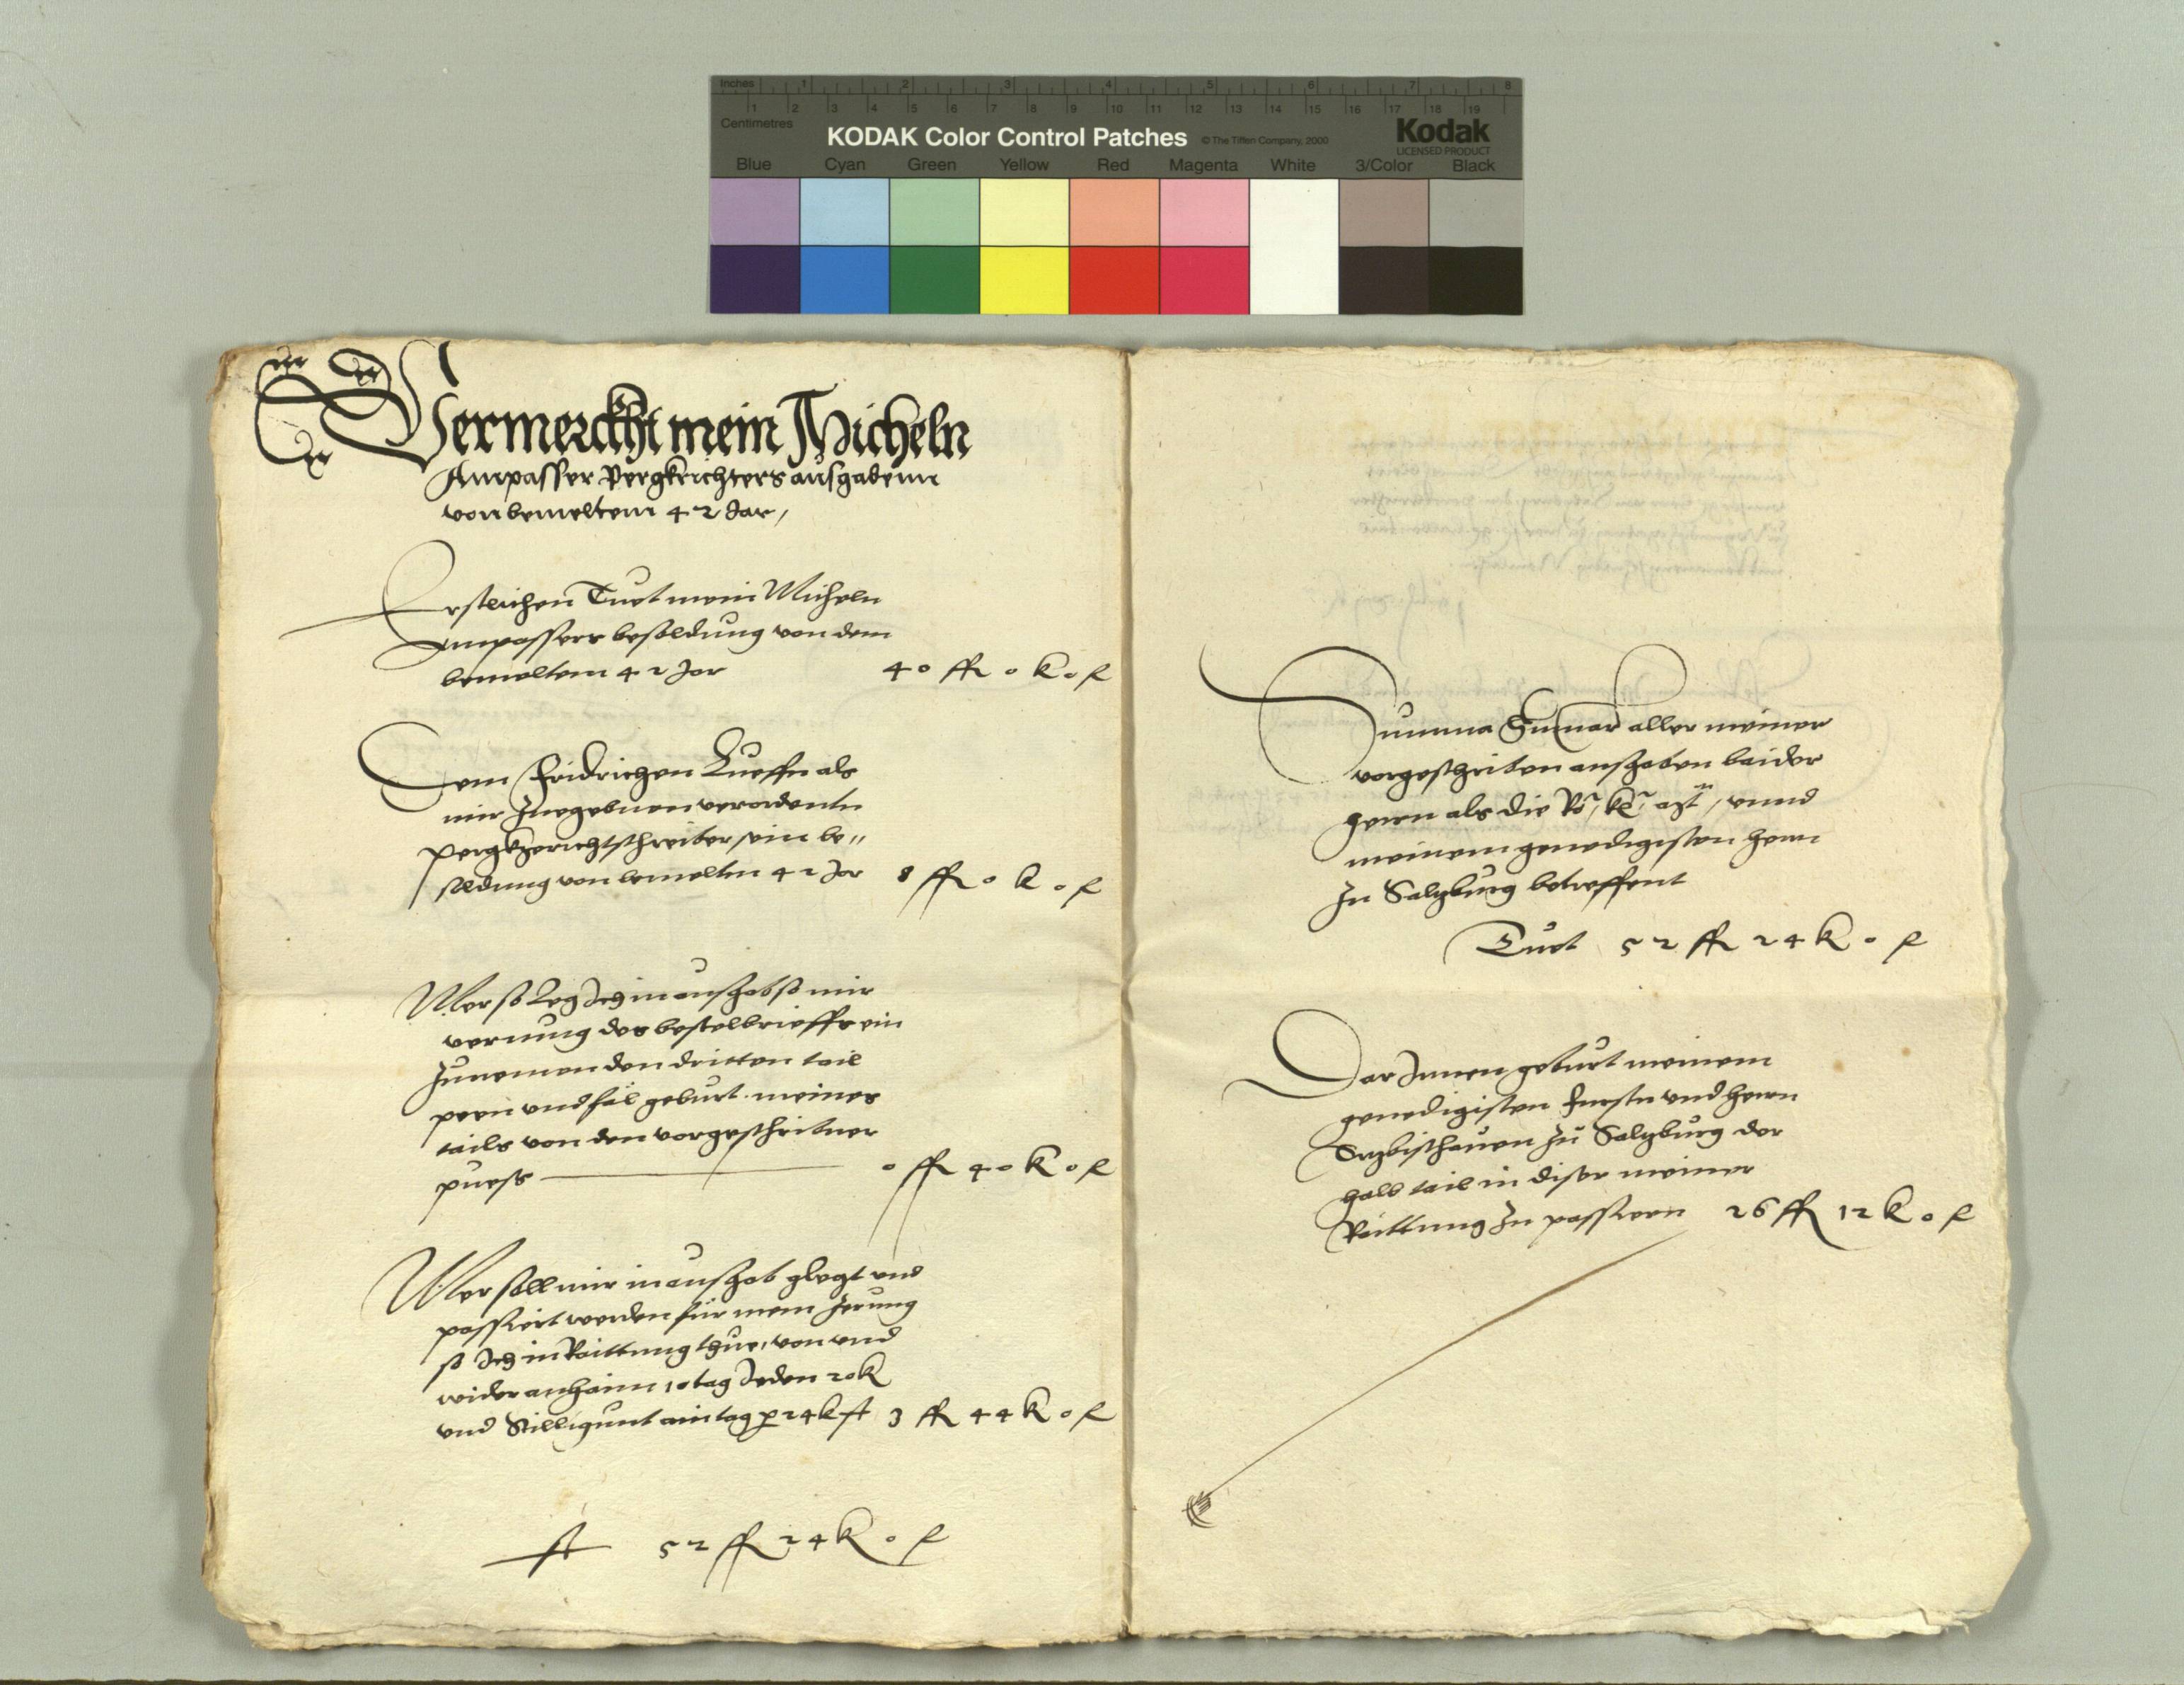 Inches 1 2 3 4 5 6 7 8
1 2 3 4 5 6 7 8 9 10 11 12 13 14 15 16 17 18 19
Centimetres
KODAK Color Control Patches © The Tiffen Company, 2000 Kodak
LICENSED PRODUCT
Blue Cyan Green Yellow Red Magenta White 3/Color Black
Vermerckht mein Micheln
Ampasser Pergkrichters ausgaben
von bemeltem 42 Jar,
Erstlichen Tuet mein Micheln
Ampassers besoldung von dem
bemeltem 42 Jar 40 fl 0 k 0 f
Dem Fridrichen Kueffn als
mir zuegebnen verordentn
pergkgerichtschreiber sein be„
soldung von bemeltn 42 Jar 8 fl 0 k 0 f
Mer so Leg Ich in ausgab so mir
vermug des bestelbrieffs ein
zunemen den dritten tail
peen und fäl geburt meines
tails von den vorgeschribner
puess 0 fl 40 k 0 f
Mer soll mir in ausgab glegt und
passiert werden für mein Zerung
so Ich in Raittung thue, von und
wider anhaim 10 tag Jeden 20 k
und Stilligunt ain tag p 24 k ft 3 fl 44 k 0 f
ft 52 fl 24 k 0 f
Summa Sumar aller meiner
vorgeschriben ausgaben baider
herrn als die Rö: Kü: Mt, unnd
meinem genedigisten herrn
zu Salzburg betreffent
Tuet 52 fl 24 k 0 f
Dar Innen geburt meinem
genedigisten Furstn und herrn
Erzbischouen zu Salzburg der
halb tail in diser meiner
Raittung zu passiern 26 fl 12 k 0 f